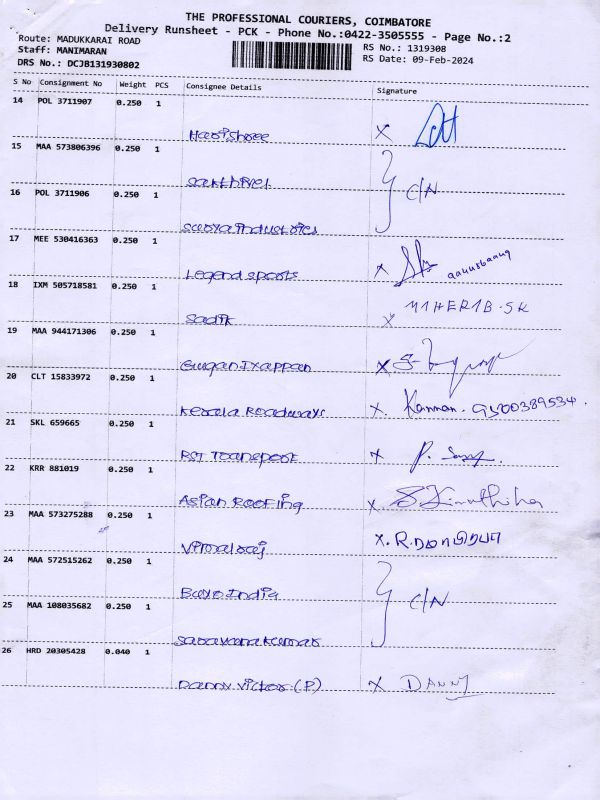 THE PROFESSIONAL COURIERS, COIMBATORE
Delivery Runsheet - PCK - Phone No.:0422-3505555 - Page No.:2
Route: MADUKKARAI ROAD
Staff: MANIMARAN
DRS No.: DCJB131930802
RS No.: 1319308
RS Date: 09-Feb-2024
S No Consignment No Weight PCS Consignee Details Signature
14 POL 3711907 0.250 1
Harishree X
15 MAA 573806396 0.250 1
Sakthivel
16 POL 3711906 0.250 1
C/N
Surya industries
17 MEE 530416363 0.250 1
Legend sports X
18 IXM 505718581 0.250 1
Sadik X M1HER1B.SK
19 MAA 944171306 0.250 1
Gugan Iyappan X
20 CLT 15833972 0.250 1
Kerala Roadways X. Kannan. 9500389534.
21 SKL 659665 0.250 1
RST Transport X P.
22 KRR 881019 0.250 1
Asian Roofing X. S Kiruthika
23 MAA 573275288 0.250 1
Vimalraj X. R.
24 MAA 572515262 0.250 1
India
25 MAA 108035682 0.250 1
C/N
Saravanakumar
26 HRD 20305428 0.040 1
Danny Victor (P) X DANNY